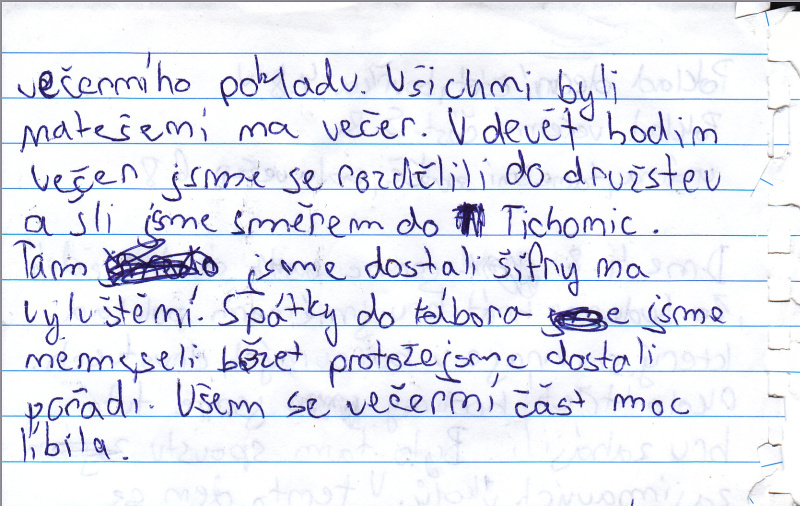 večerního pokladu. Všichni byli
natešení na večer. V devět hodin
večer jsme se rozdělili do družstev
a sli jsme směrem do Tichonic.
Tam jsme dostali šifry na
vyluštění. Spátky do tábora jsme
nemuseli běžet protože jsme dostali
pořadí. Všem se večerní část moc
líbila.